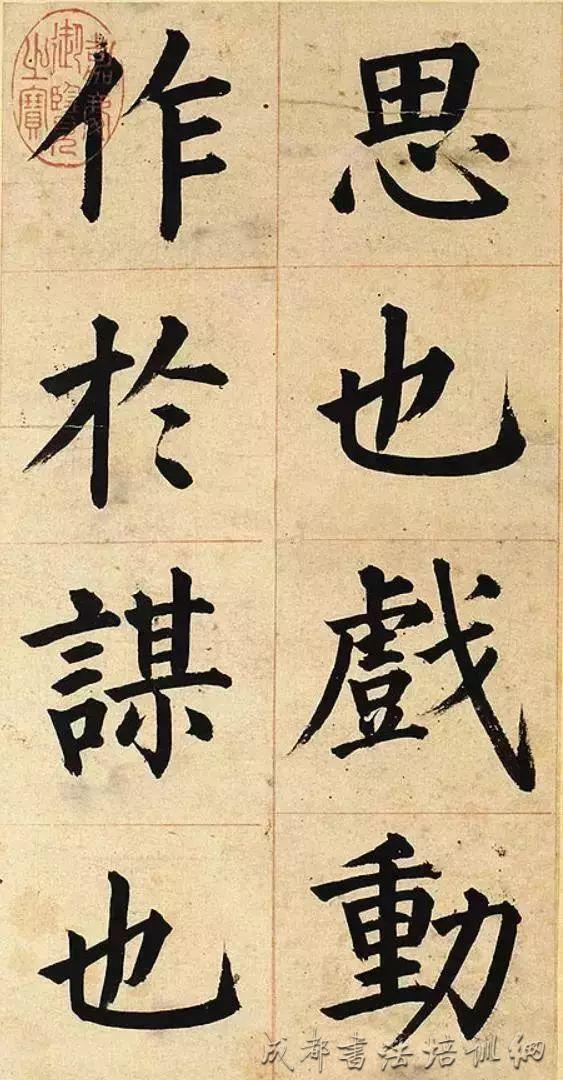 思也戲動
作於謀也
嘉慶
御覽
之寶
成都書法培训網